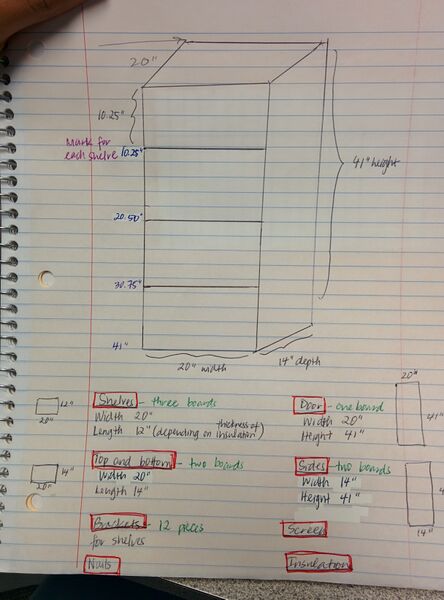 20"
10.25"
Mark for
each shelve 10.25"
41" height
20.50"
30.75"
41"
20" width
14" depth
20"
41"
12"
20"
Shelves - three boards
Width 20"
Length 12" (depending on thickness of insulation)
Door - one board
Width 20"
Height 41"
14"
20"
Top and bottom - two boards
Width 20"
Length 14"
Sides - two boards
Width 14"
Height 41"
14"
Brackets - 12 pieces
for shelves
Screen
Nails
Insulation